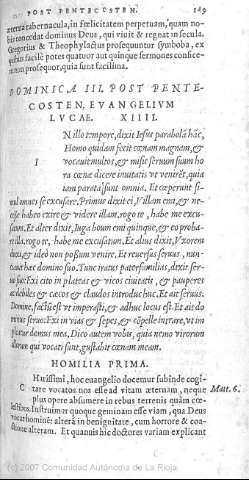 POST PENTECOSTEN. 189
æterna tabernacula, in fœlicitatem perpetuam, quam no-
bis concedat dominus Deus, qui vivit & regnat in secula.
Gregorius & Theophylactus prosequuntur symbola, ex
quibus facile potes quatuor aut quinque sermones confice-
prosequor, quia sunt facillima.
DOMINICA III. POST PENTE-
COSTEN, EVANGELIUM
LUCAE. XIIII.
IN illo tempore, dixit Iesus parabolā hāc,
Homo quidam fecit cœnam magnam, &
vocavit multos, & misit servum suum ho
ra cœnæ dicere invitatis ut venirēt, quia
iam parata sunt omnia. Et cœperunt si-
mul omnes se excusare. Primus dixit ei, Villam emi, & ne-
cesse habeo exire & videre illam, rogo te, habe me excu-
sum. Et alter dixit, Iuga boum emi quinque, & eo proba-
re illa, rogo te, habe me excusatum. Et alius dixit, Uxorem
duxi, & ideo non possum venire. Et reversus servus, nun-
ciavit hæc domino suo. Tunc iratus paterfamilias, dixit ser-
vo suo: Exi cito in plateas & vicos civitatis, & pauperes
ac debiles & cæcos & claudos introduc huc. Et ait servus.
Domine, factū est ut imperasti, & adhuc locus est. Et ait do
minus servo: Exi in vias & sepes, & cōpelle intrare, ut im
pleatur domus mea. Dico autem vobis, quia nemo virorum
illorum qui vocati sunt, gustabit cœnam meam.
HOMILIA PRIMA.
Charissimi, hoc euangelio docemur subinde cogi-
tare vocatos nos esse ad vitam æternam, neque Matt. 6.
plus opere absumere in rebus terrenis quàm cœ-
lestibus. Instruimur quoque geminam esse viam, qua Deus
vocat hominē: altera in benignitate, cum hortore & coa-
ctione alteram. Et quamuis hic doctores variam explicant
(c) 2007 Comunidad Autónoma de La Rioja